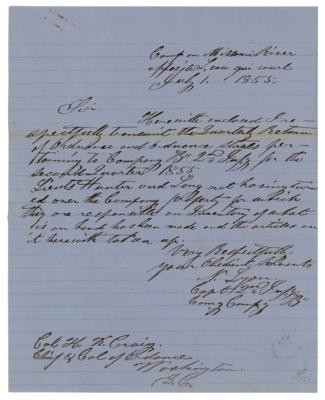 Camp on Missouri River
opposite L'eau qui court
July 1. 1855.
Sir.
Herewith enclosed I re-
spectfully transmit the Quarterly Return
of Ordnance and Ordnance Stores per-
taining to Company "B" 2nd Infy for the
second Quarter 1855
Lieuts Hunter and Long not having turn-
ed over the Company property for which
they are responsible an Inventory of what
is on hand has been made and the articles on
it herewith taken up.
Very Respectfully
your Obedient Servant
N. Lyon.
Capt 2nd Infy
Comg Compy "B"
Col H. K. Craig
Chief & Col of Ordnance
Washington
D.C.